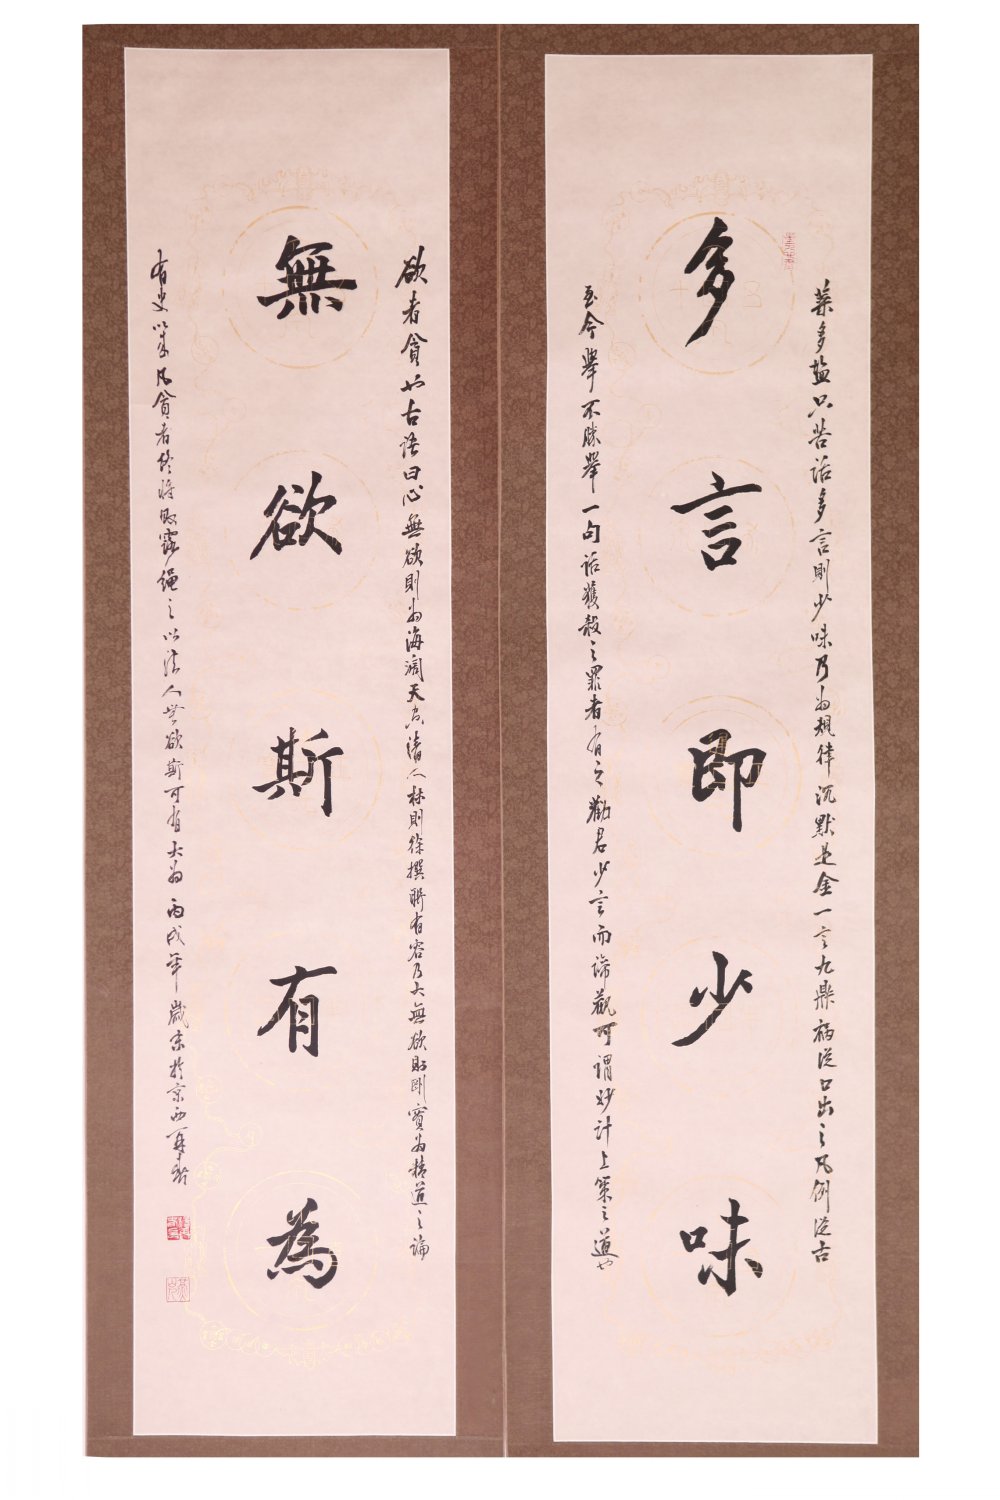 多言即少味
菜多盐只苦话多言则少味乃为规律沉默是金一言九鼎祸从口出之凡例从古
至今舉不胜舉一句话獲殺之罪者有之勸君少言而諦觀可謂妙计上策之道也
無欲斯有為
欲者貪也古语曰心無欲則为海阔天空清人林則徐撰聯有容乃大無欲則剛實为精道之論
有史以來凡貪者終将败露绳之以法人世無欲斯可有大为丙戌年歲末於京西